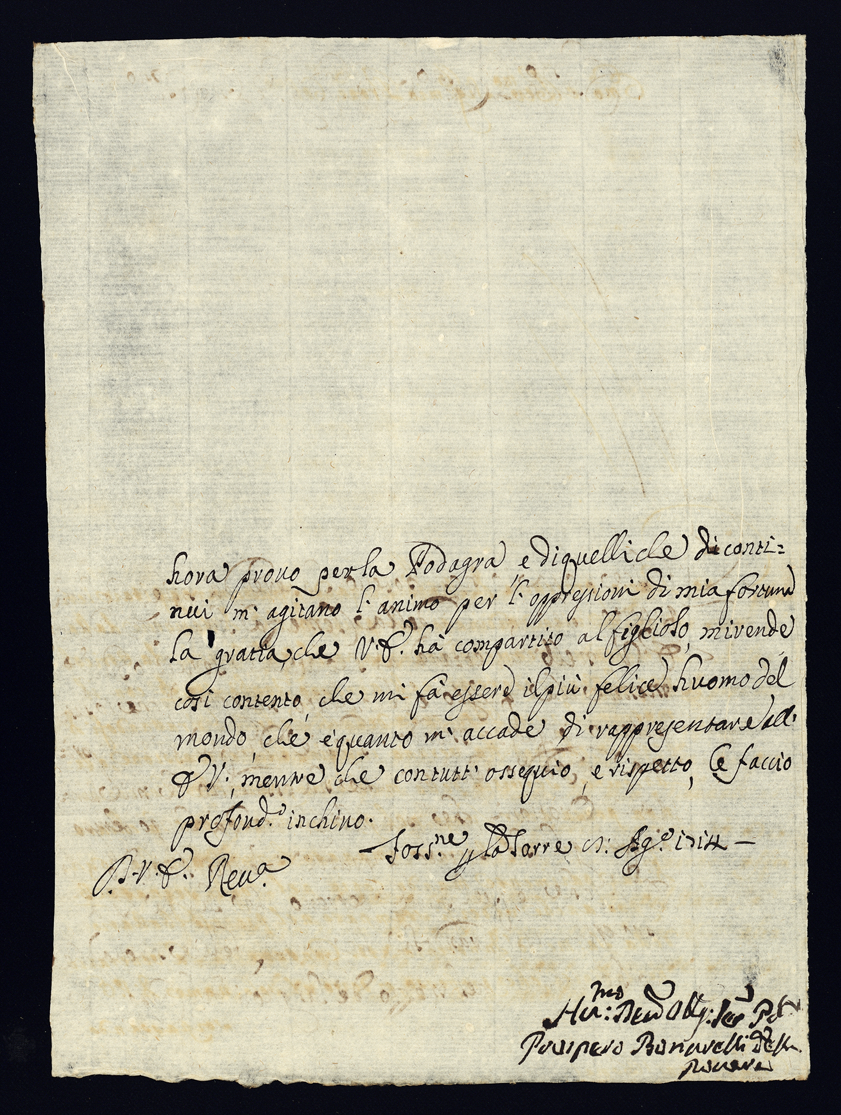 hora prouo per la Podagra e di quelli che di conti=
nui m'agitano l'animo per l'oppressioni di mia fortuna
la gratia, che V.E. hà compartito al figliolo, mi rende
così contento, che mi fà essere il più felice huomo del
mondo, che è quanto m'accade di rappresentare all'
E.V., mentre che con tutt'ossequio, e rispetto, Le faccio
profond.o inchino.
Foss.ne la Torre Ag.o 1714 —
D.V.E. Reu.a
mo
Hu: Deu Obl: Ser
Prospero Bonarelli della
Rouere